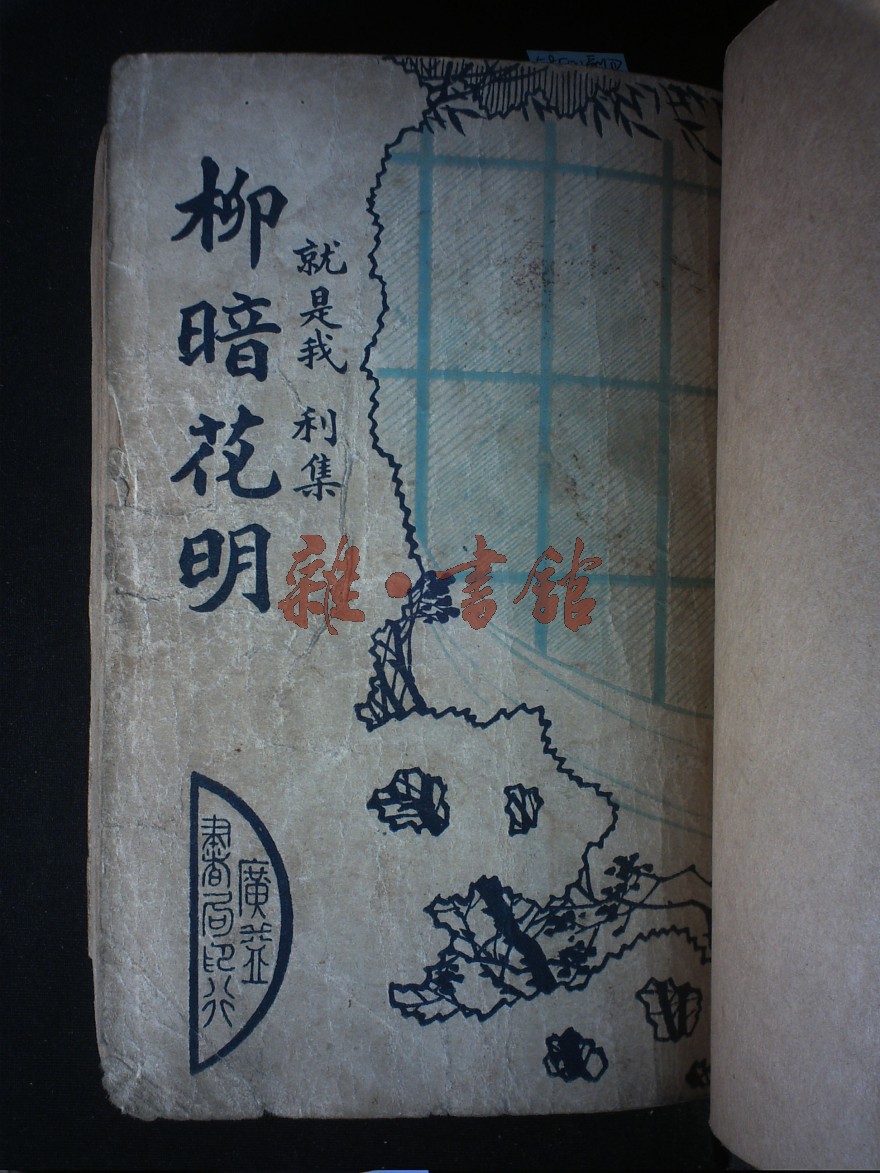 就是我 利集
柳暗花明
雜·書館
廣益
書局印行